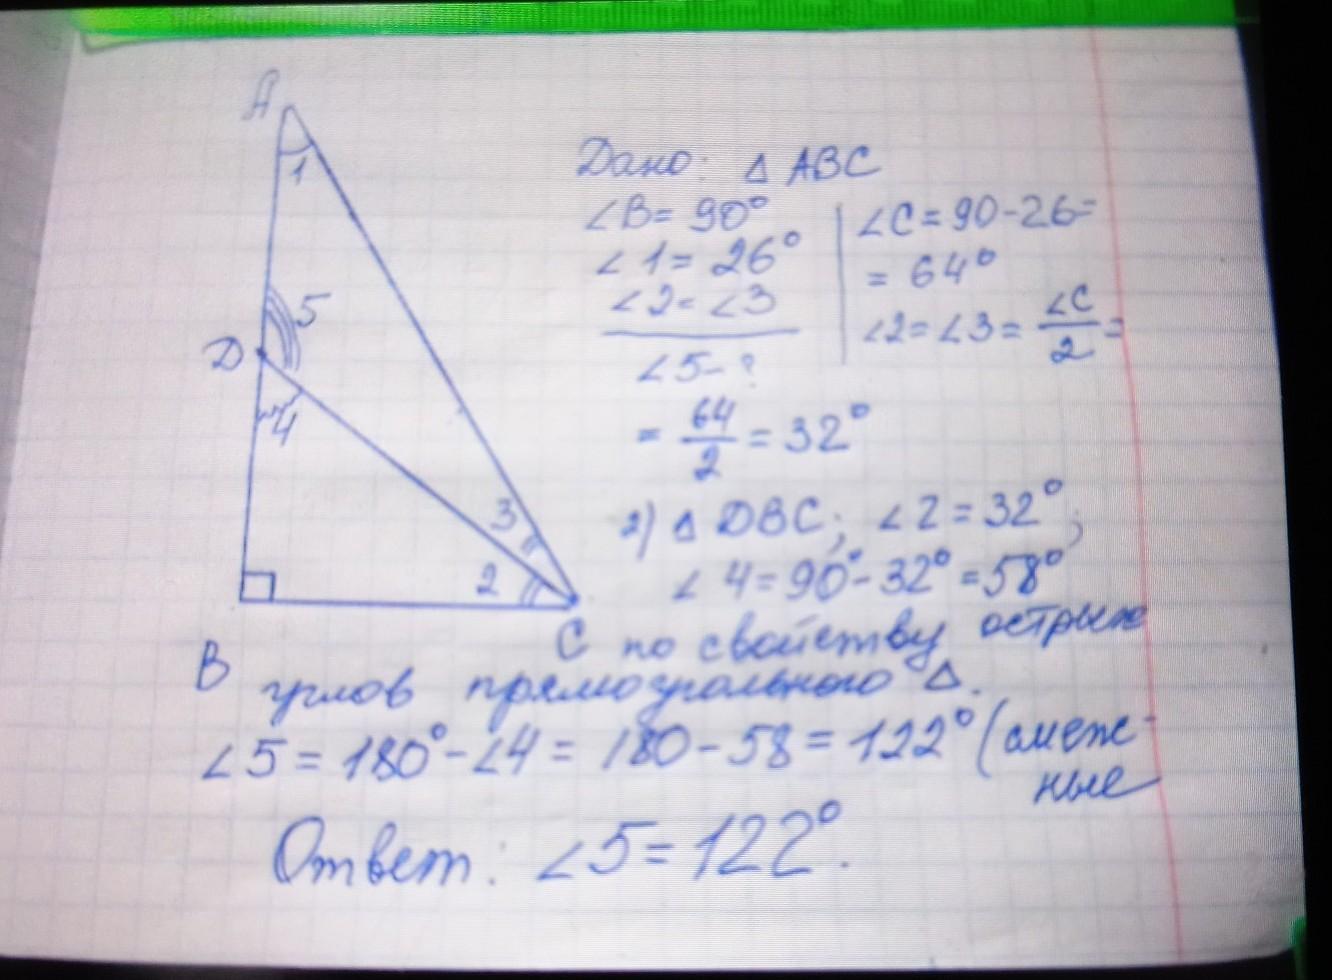 A
1
5
D
4
3
2
B
C
Дано: Δ ABC
∠B = 90°
∠1 = 26°
∠2 = ∠3
∠5 - ?
∠C = 90 - 26 =
= 64°
∠2 = ∠3 = ∠C/2 =
= 64/2 = 32°
2) Δ DBC; ∠2 = 32°;
∠4 = 90° - 32° = 58°
по свойству острых
углов прямоугольного Δ.
∠5 = 180° - ∠4 = 180 - 58 = 122° (смеж-
ные
Ответ: ∠5 = 122°.